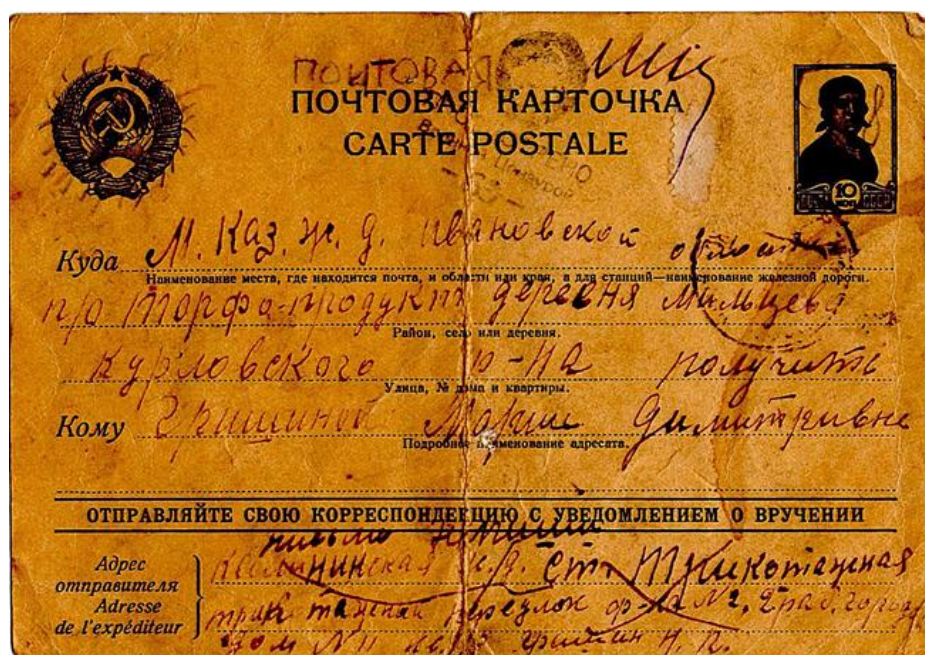 ПОЧТОВАЯ
ПОЧТОВАЯ КАРТОЧКА
CARTE POSTALE
10
Куда М. Каз. ж. д. Ивановской области
Наименование места, где находится почта, и области или края, а для станций—наименование железной дороги.
п/о Торфо-продукт деревня Мильцева
Район, село или деревня.
Курловского р-на получить
Улица, № дома и квартиры.
Кому Гришиной Марие Димитревне
Подробное наименование адресата.
ОТПРАВЛЯЙТЕ СВОЮ КОРРЕСПОНДЕНЦИЮ С УВЕДОМЛЕНИЕМ О ВРУЧЕНИИ
письмо
Адрес отправителя
Adresse de l'expéditeur
Калининская ж.д. Ст. Трикотажная
Дом № 11 Гришин